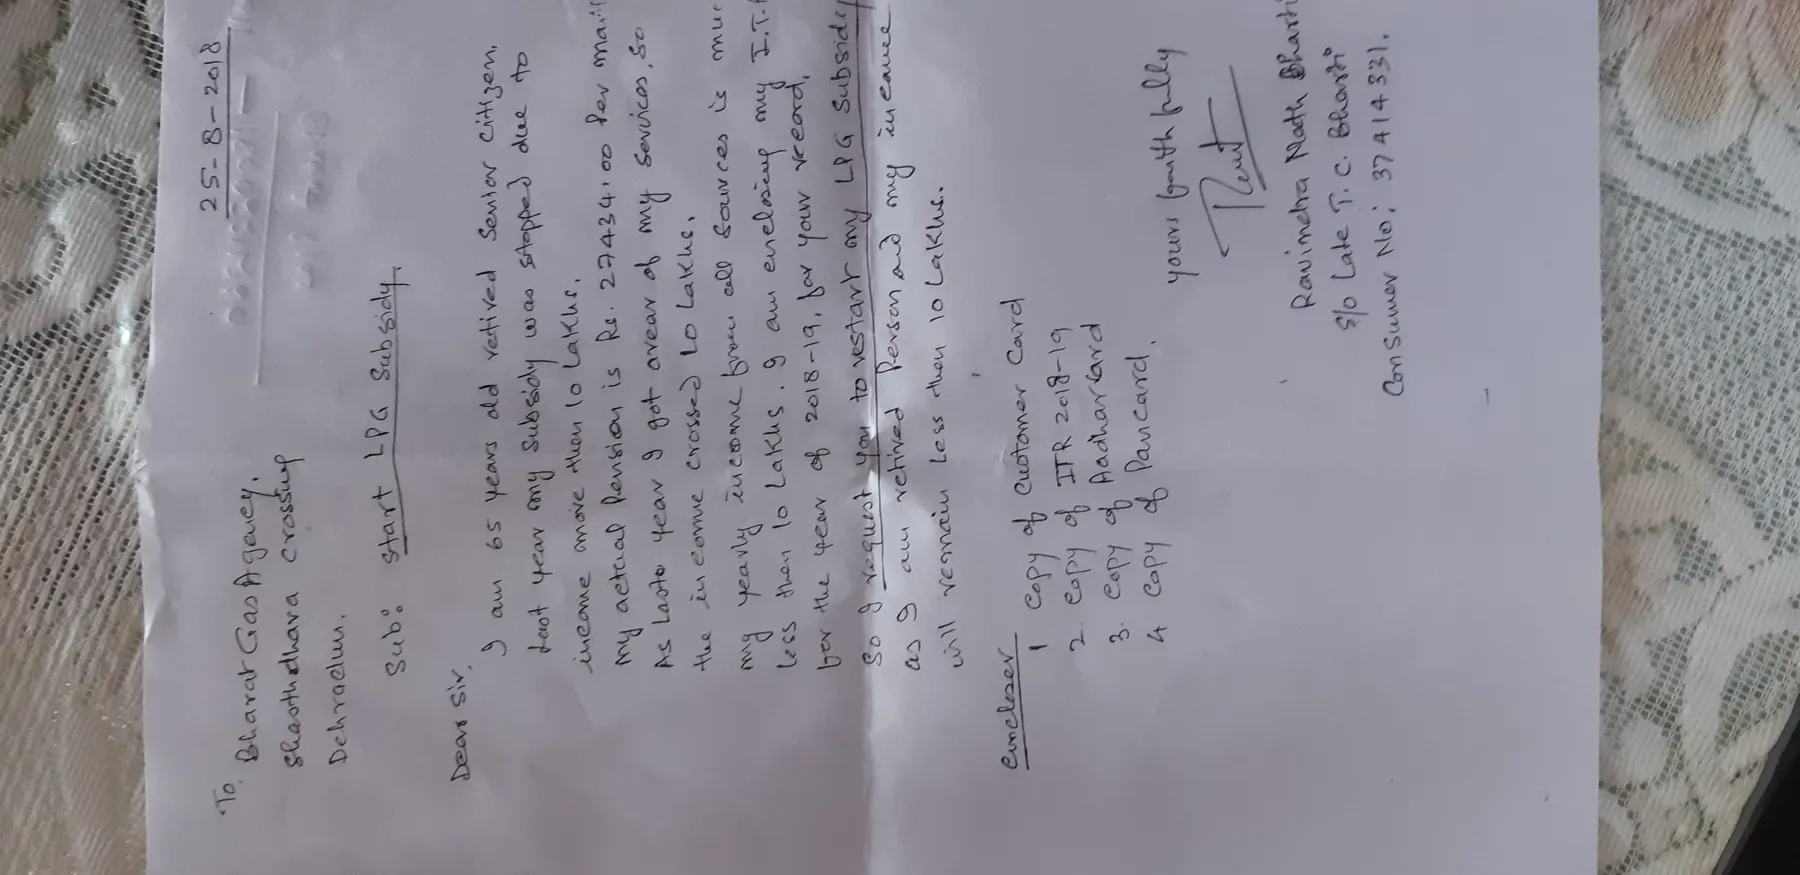 25-8-2018
To,
Bharat Gas Agency,
Shasthdhara crossing
Dehradun.
Sub: Start LPG Subsidy.
Dear Sir,
I am 65 years old retired Senior Citizen.
Last year my subsidy was stopped due to
income more then 10 Lakhs.
My actual Pension is Rs. 27434.00 Per
As Last year I got arear of my Services, So
the income crossed 10 Lakhs.
my yearly income from all sources is
Less then 10 Lakhs. I am enclosing my
for the year of 2018-19, for your record.
So I request you to restart my LPG Subsidy
as I am retired Person and my income
will remain Less then 10 Lakhs.
Encloser
1 Copy of Customer Card
2. Copy of ITR 2018-19
3. Copy of Aadhar Card
4 Copy of Pancard.
yours faithfully
Ravindra Nath Bharti
S/o Late T. C. Bharti
Consumer No: 37414331.